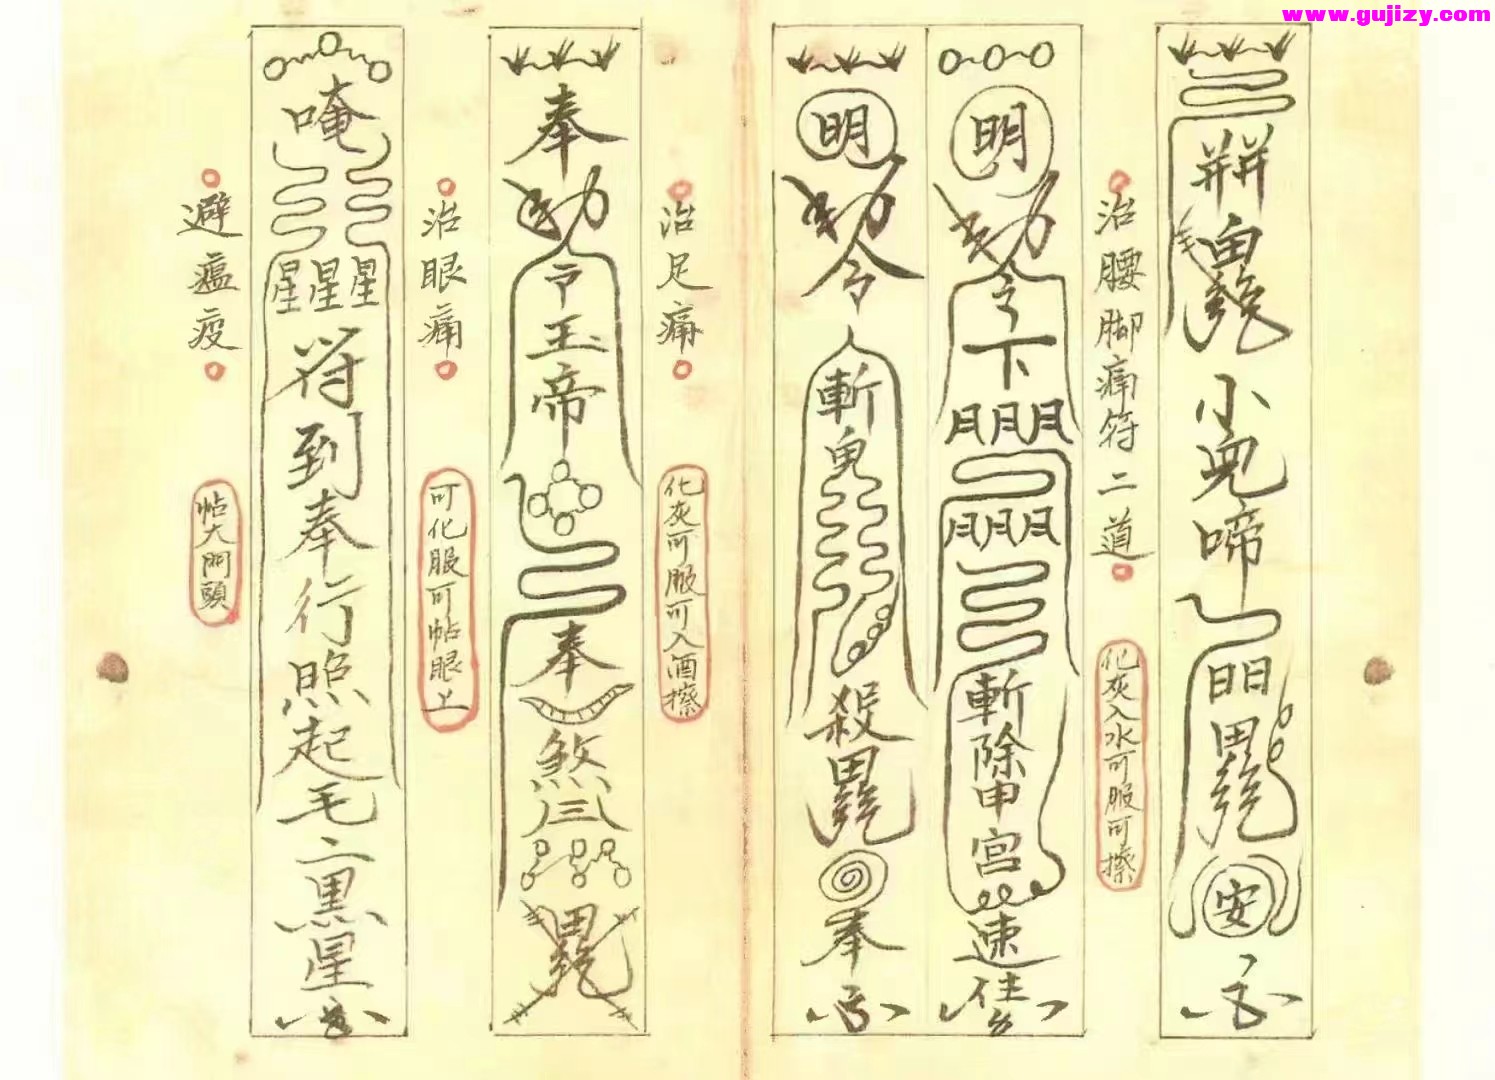 www.gujizy.com
小兒啼
日日
安
治腰脚痛符二道
化灰入水可服可擦
明
令下
月月月
月月月
斬除申宮
速
明
令
斬鬼
殺
奉
治足痛
化灰可服可入酒擦
奉
玉帝
奉
煞
三
治眼痛
可化服可帖眼上
唵
星星星
符到奉行照起毛二黑星
避瘟疫
帖大門頭